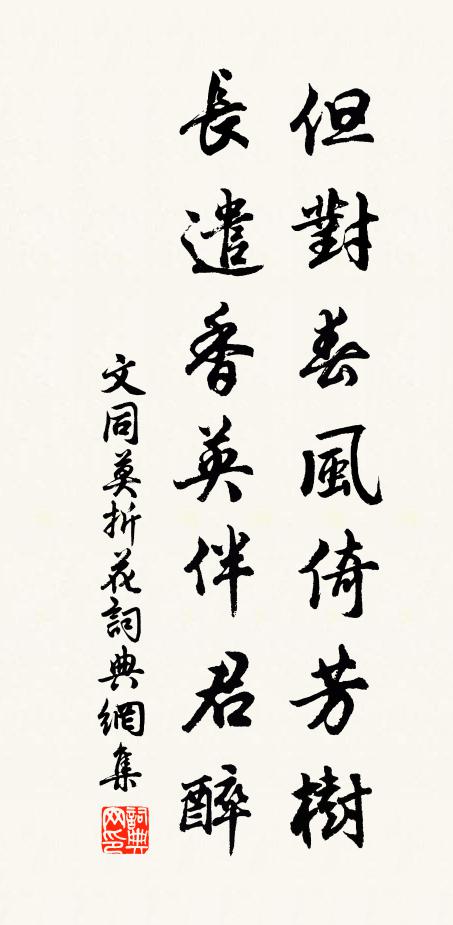 但對春風倚芳樹
長遣香英伴君醉
文同莫折花詞典網集
詞典網印